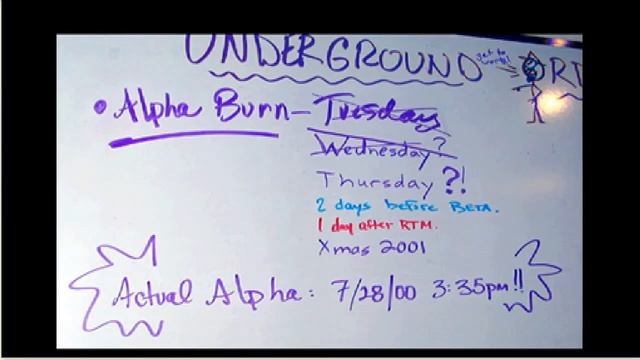 UNDERGROUND
• Alpha Burn - Tuesday
Wednesday?
Thursday?!
2 days before BETA.
1 day after RTM.
Xmas 2001
Actual Alpha: 7/28/00 3:35pm!!